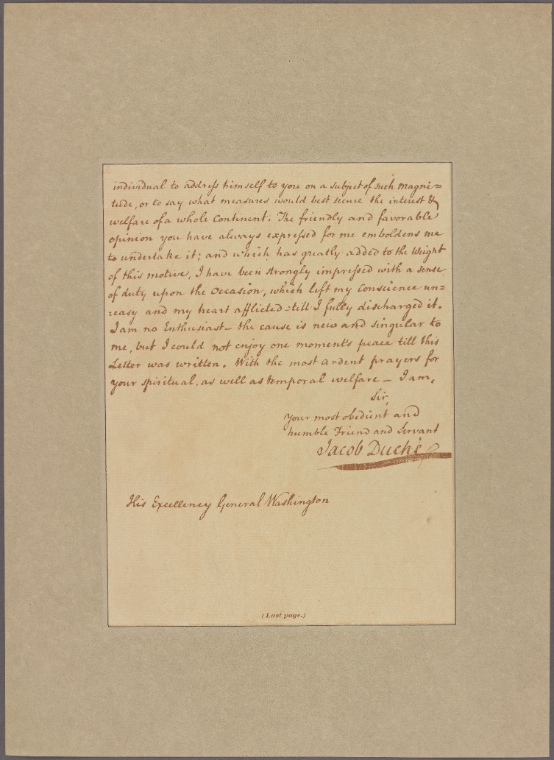 individual to address himself to you on a subject of such magni=
tude, or to say what measures would best secure the interest &
welfare of a whole Continent. The friendly and favorable
opinion you have always expressed for me emboldens me
to undertake it; and which has greatly added to the Weight
of this motive, I have been strongly impressed with a sense
of duty upon the Occasion, which left my Conscience un=
easy and my heart afflicted till I fully discharged it.
I am no Enthusiast – the cause is new and singular to
me, but I could not enjoy one moment's peace till this
Letter was written. With the most ardent prayers for
your spiritual, as well as temporal welfare – I am,
Sir,
Your most obedient and
humble Friend and Servant
Jacob Duché
His Excellency General Washington
(Last page.)